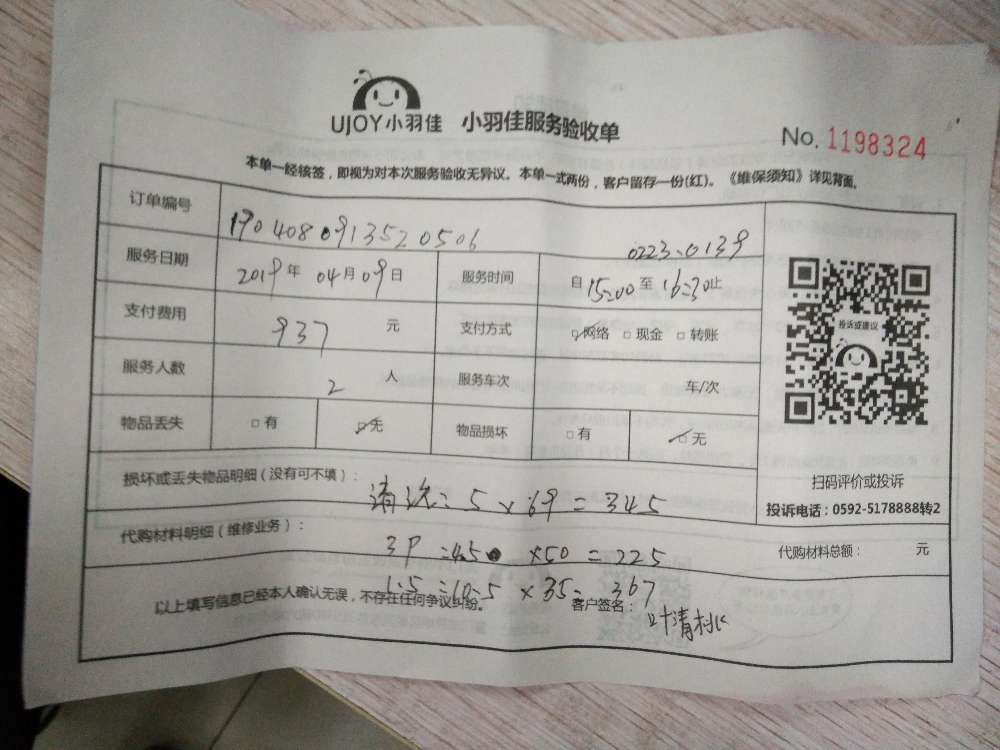 UJOY小羽佳 小羽佳服务验收单 No. 1198324
本单一经核签，即视为对本次服务验收无异议。本单一式两份，客户留存一份(红)。《维保须知》详见背面。
订单编号 1904080913520506 0223-0139
服务日期 2019年 04月09日 服务时间 自15:00至16:30止
支付费用 937 元 支付方式 ☑网络 □现金 □转账
服务人数 2 人 服务车次 车/次
物品丢失 □有 ☑无 物品损坏 □有 ☑无
投诉或建议
扫码评价或投诉
投诉电话：0592-5178888转2
损坏或丢失物品明细（没有可不填）：
清洗：5×69=345
代购材料明细（维修业务）：
3P =4.5 ×50=225
代购材料总额： 元
1.5 =10.5×35=367
以上填写信息已经本人确认无误，不存在任何争议纠纷。 客户签名：
叶清